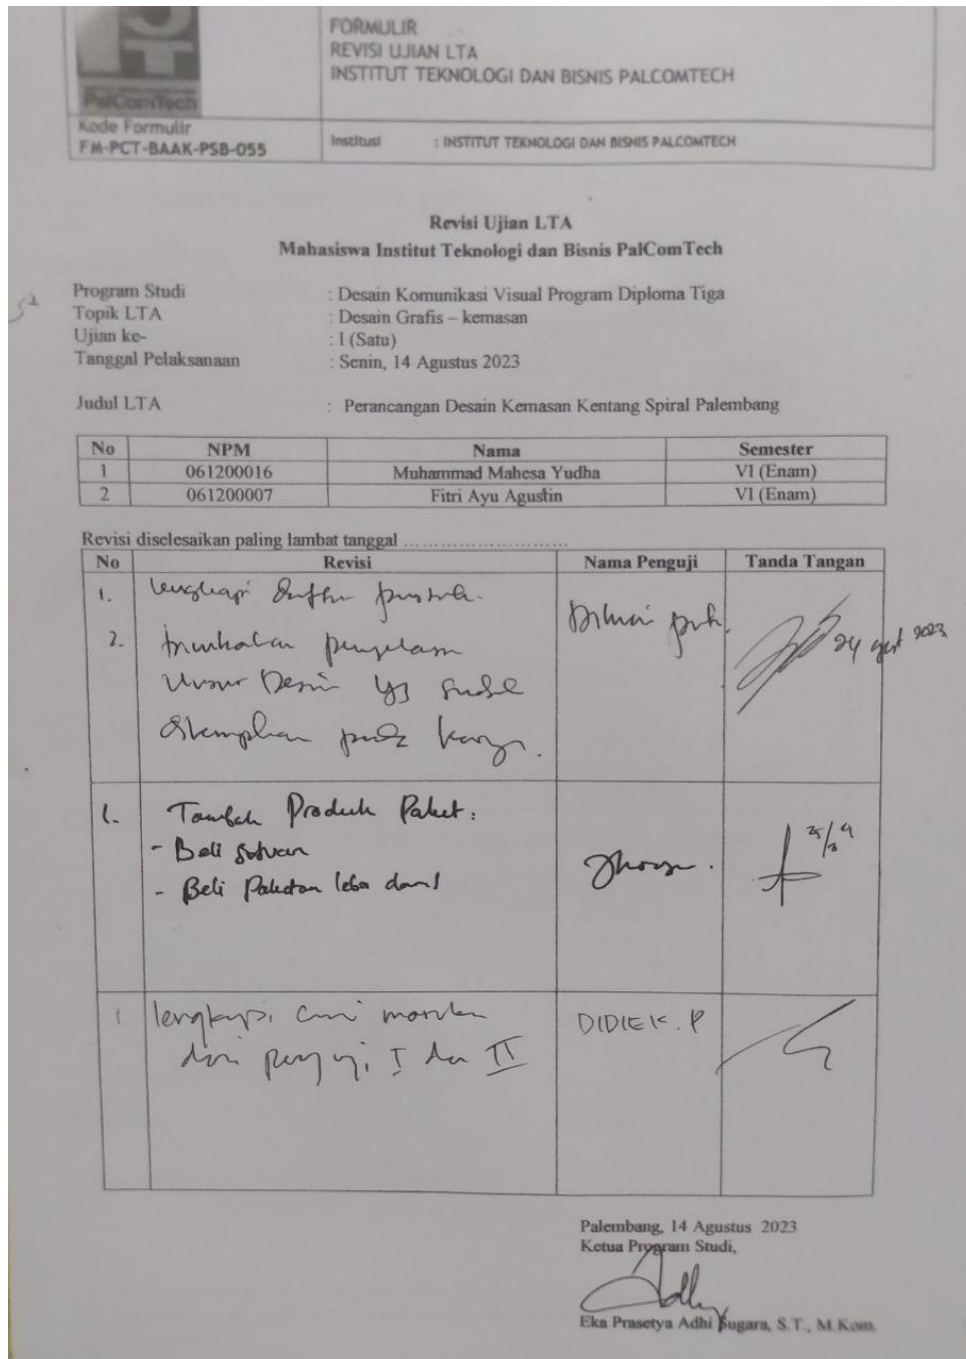 FORMULIR
REVISI UJIAN LTA
INSTITUT TEKNOLOGI DAN BISNIS PALCOMTECH
PalComTech
Kode Formulir
FM-PCT-BAAK-PSB-055
Institusi : INSTITUT TEKNOLOGI DAN BISNIS PALCOMTECH
Revisi Ujian LTA
Mahasiswa Institut Teknologi dan Bisnis PalComTech
Program Studi : Desain Komunikasi Visual Program Diploma Tiga
Topik LTA : Desain Grafis – kemasan
Ujian ke- : I (Satu)
Tanggal Pelaksanaan : Senin, 14 Agustus 2023
Judul LTA : Perancangan Desain Kemasan Kentang Spiral Palembang
No NPM Nama Semester
1 061200016 Muhammad Mahesa Yudha VI (Enam)
2 061200007 Fitri Ayu Agustin VI (Enam)
Revisi diselesaikan paling lambat tanggal ............................
No Revisi Nama Penguji Tanda Tangan
1. lengkapi daftar pustaka.
2. penjelasan
Unsur Desain yg sudah
diterapkan pada karya.
24 2023
1. Tambah Produk Paket:
- Beli Satuan
- Beli Paketan
1 lengkapi
dari penguji I dan II
DIDIEK. P
Palembang, 14 Agustus 2023
Ketua Program Studi,
Eka Prasetya Adhi Sugara, S.T., M.Kom.